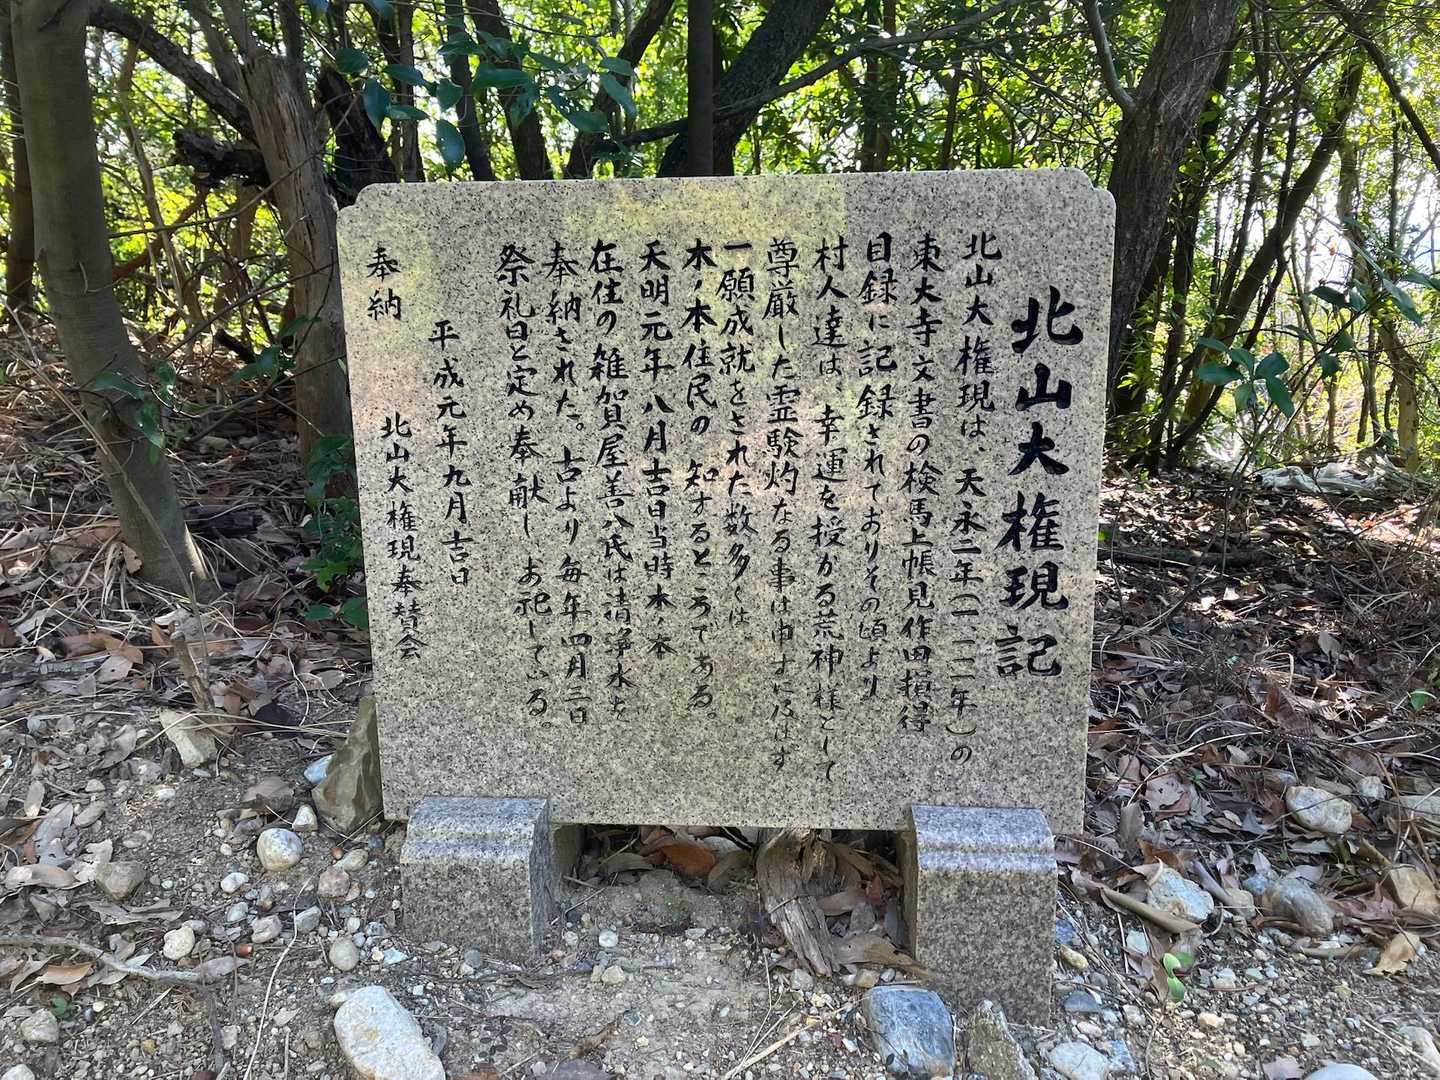 北山大権現記
北山大権現は、天永二年(一一一二年)の
東大寺文書の検馬上帳見作田損得
目録に記録されておりその頃より
村人達は、幸運を授かる荒神様として
尊厳した霊験灼なる事は申すに及はす
一願成就をされた数多くは
木ノ本住民の知するところである。
天明元年八月吉日当時木ノ本
在住の雑賀屋善八氏は清浄水を
奉納された。古より毎年四月三日
祭礼日と定め奉献しお祀している。
平成元年九月吉日
奉納 北山大権現奉賛会